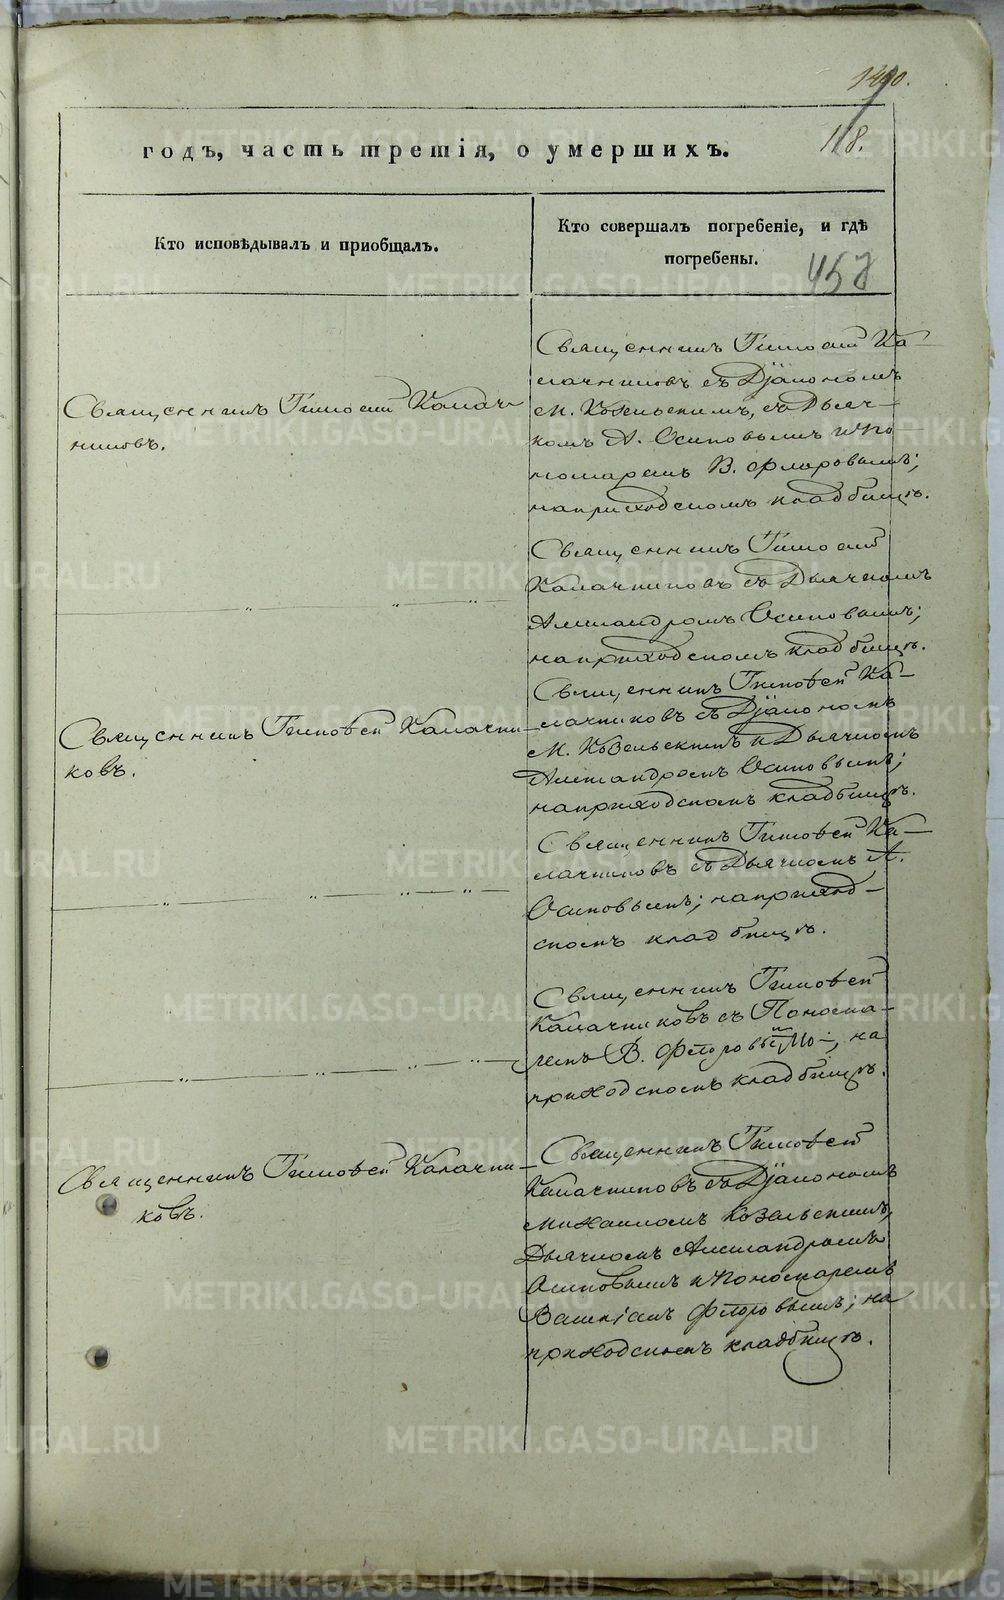 1490.
118.
годъ, часть третія, о умершихъ.
Кто исповѣдывалъ и приобщалъ.
Кто совершалъ погребеніе, и гдѣ
погребены.
457
Священникъ Тимоѳей Калач-
никовъ.
Священникъ Тимоѳей Ка-
лачниковъ съ Діякономъ
М. Козельскимъ, съ Дьяч-
комъ А. Осиповымъ и По-
номаремъ В. Флоровымъ;
на приходскомъ кладбищѣ.
" " "
Священникъ Тимоѳей
Калачниковъ съ Дьячкомъ
Александромъ Осиповымъ;
на приходскомъ кладбищѣ.
Священникъ Тимоѳей Калачни-
ковъ.
Священникъ Тимоѳей Ка-
лачниковъ съ Діякономъ
М. Козельскимъ и Дьячкомъ
Александромъ Осиповымъ;
на приходскомъ кладбищѣ.
" " " "
Священникъ Тимоѳей Ка-
лачниковъ съ Дьячкомъ А.
Осиповымъ; на приход-
скомъ кладбищѣ.
" " " "
Священникъ Тимоѳей
Калачниковъ съ Понома-
ремъ В. Флоровымъ; на
приходскомъ кладбищѣ.
Священникъ Тимоѳей Калачни-
ковъ.
Священникъ Тимоѳей
Калачниковъ съ Діякономъ
Михаиломъ Козельскимъ,
Дьячкомъ Александромъ
Осиповымъ и Пономаремъ
Флоровымъ; на
приходскомъ кладбищѣ.
METRIKI.GASO-URAL.RU